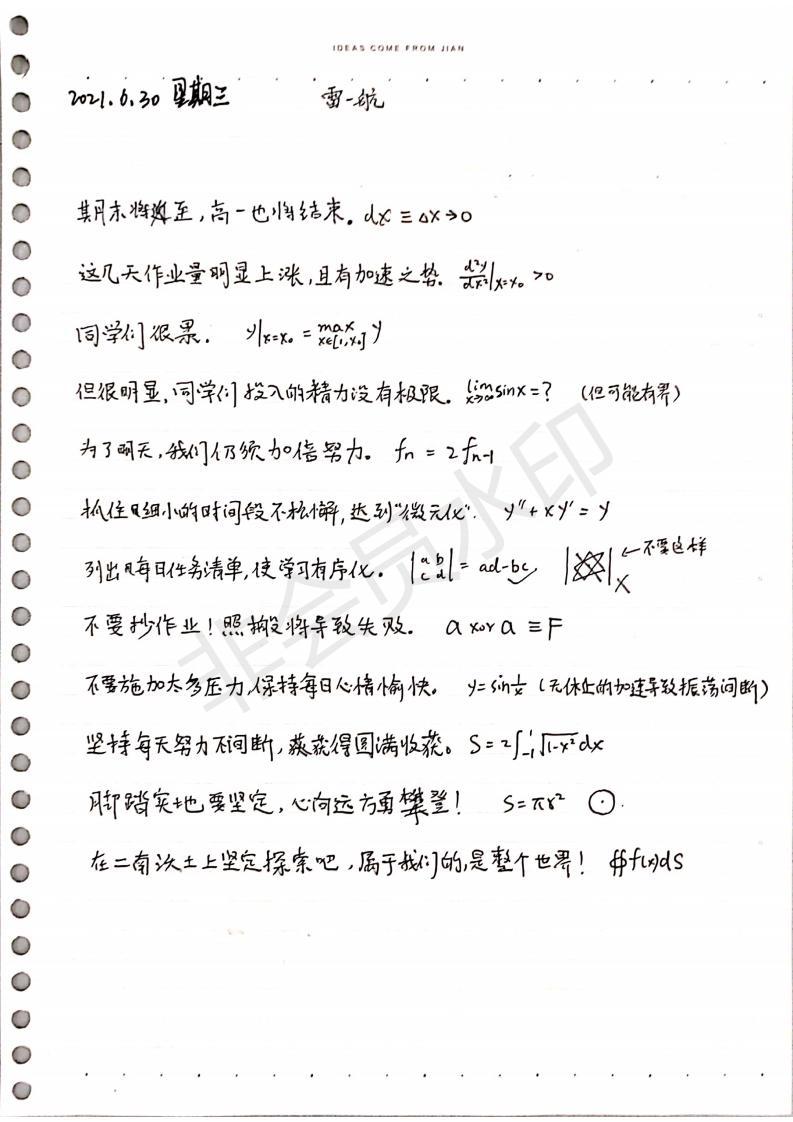 IDEAS COME FROM JIAN
2021.6.30 星期三 雷一航
期末将至,高一也将结束。dx ≡ Δx→0
这几天作业量明显上涨,且有加速之势。d²y/dx²|x=x₀ >0
同学们很累. y|x=x₀ = max x∈[1,x₀] y
但很明显,同学们投入的精力没有极限。lim x→∞ sinx=? (但可能有界)
为了明天,我们仍须加倍努力。fn = 2fn-1
抓住细小的时间段不松懈,达到"微元化". y''+xy'=y
列出每日任务清单,使学习有序化。|a b c d| = ad-bc ←不要这样 X
不要抄作业!照搬将导致失败. a xor a ≡ F
不要施加太多压力,保持每日心情愉快。y=sin1/x (无休止的加速导致振荡间断)
坚持每天努力不间断,获得圆满收获。S=2∫₋₁¹√1-x² dx
脚踏实地要坚定,心向远方勇攀登! S=πr²
在二南沃土上坚定探索吧,属于我们的,是整个世界! ∯f(x)dS
非会员水印